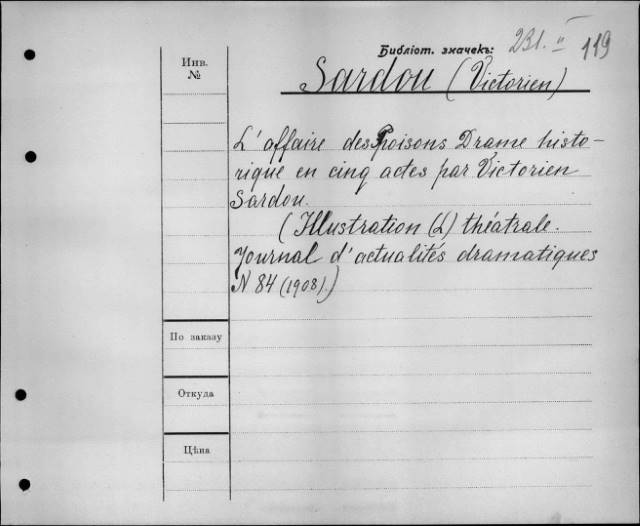 Библіот. значекъ: 231. II 119
Инв.
№
Sardou (Victorien)
L'affaire des Poisons Drame histo-
rique en cinq actes par Victorien
Sardou.
(Illustration (L) théatrale.
Journal d'actualités dramatiques
N 84 (1908).)
По заказу
Откуда
Цѣна